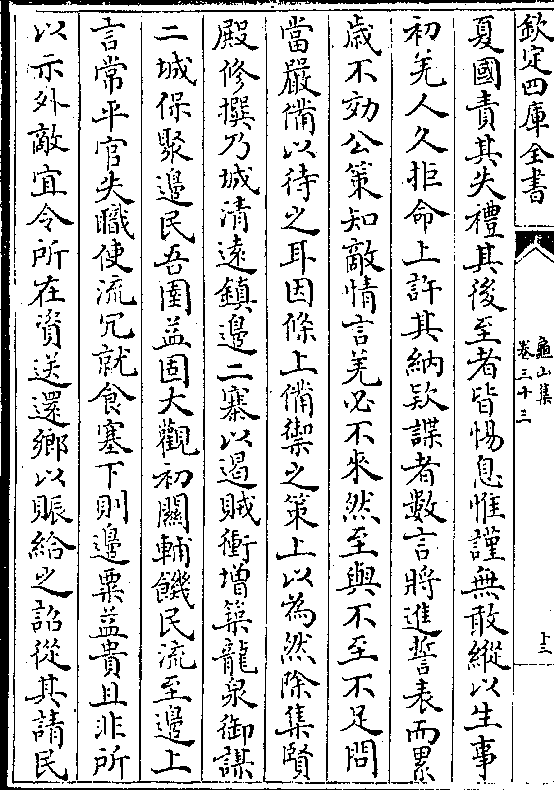 欽定四庫全書
龜山集
卷三十三
十三
夏國責其失禮其後至者皆惕息惟謹無敢縱以生事
初羌人久拒命上許其納欵諜者數言將進誓表而累
歳不効公策知敵情言羌必不來然至與不至不足問
當嚴備以待之耳因條上備禦之策上以為然除集賢
殿修撰乃城清遠鎮邊二寨以遏賊衝增築龍泉御謀
二城保聚邊民吾圉益固大觀初關輔饑民流至邊上
言常平官失職使流冗就食塞下則邊粟益貴且非所
以示外敵宜令所在資送還鄉以賑給之詔從其請民